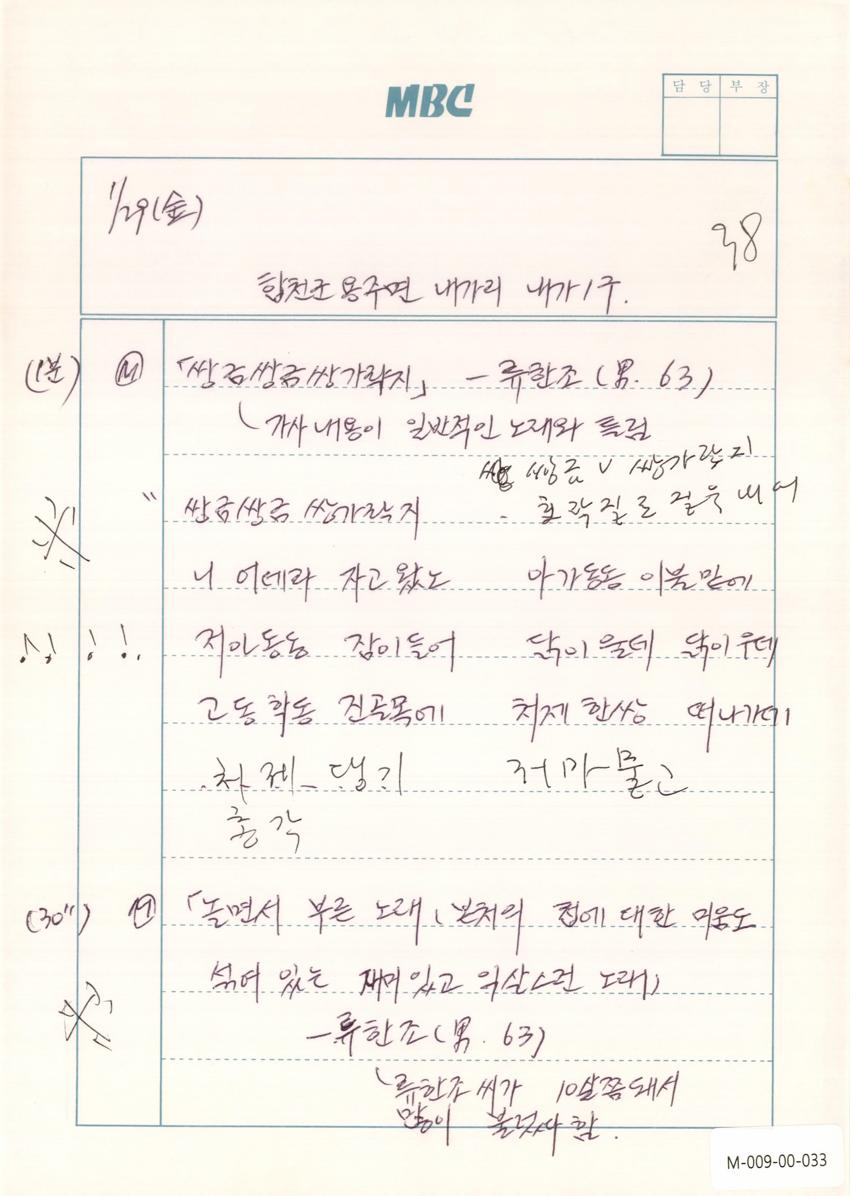 MBC
담 당 부 장
1/29(金)
38
합천군 용주면 내가리 내가1구.
(1분) Ⓜ 「쌍금쌍금쌍가락지」 - 류한조(男. 63)
가사내용이 일반적인 노래와 틀림
쌍금 ∨ 쌍가락지
호작질로 걸우내어
" 쌍금쌍금 쌍가락지
니 어데라 자고왔노 아가동동 이불밑에
저아동동 잠이들어 닭이울데 닭이우데
고동학동 진골목에 처제한쌍 떠나가데
처제 댕기 저마물고
총각
(30") Ⓜ 「놀면서 부른 노래(본처의 첩에 대한 미움도
섞여 있는 재미있고 익살스런 노래)
- 류한조(男. 63)
류한조씨가 10살쯤돼서
많이 불렀다 함.
M-009-00-033